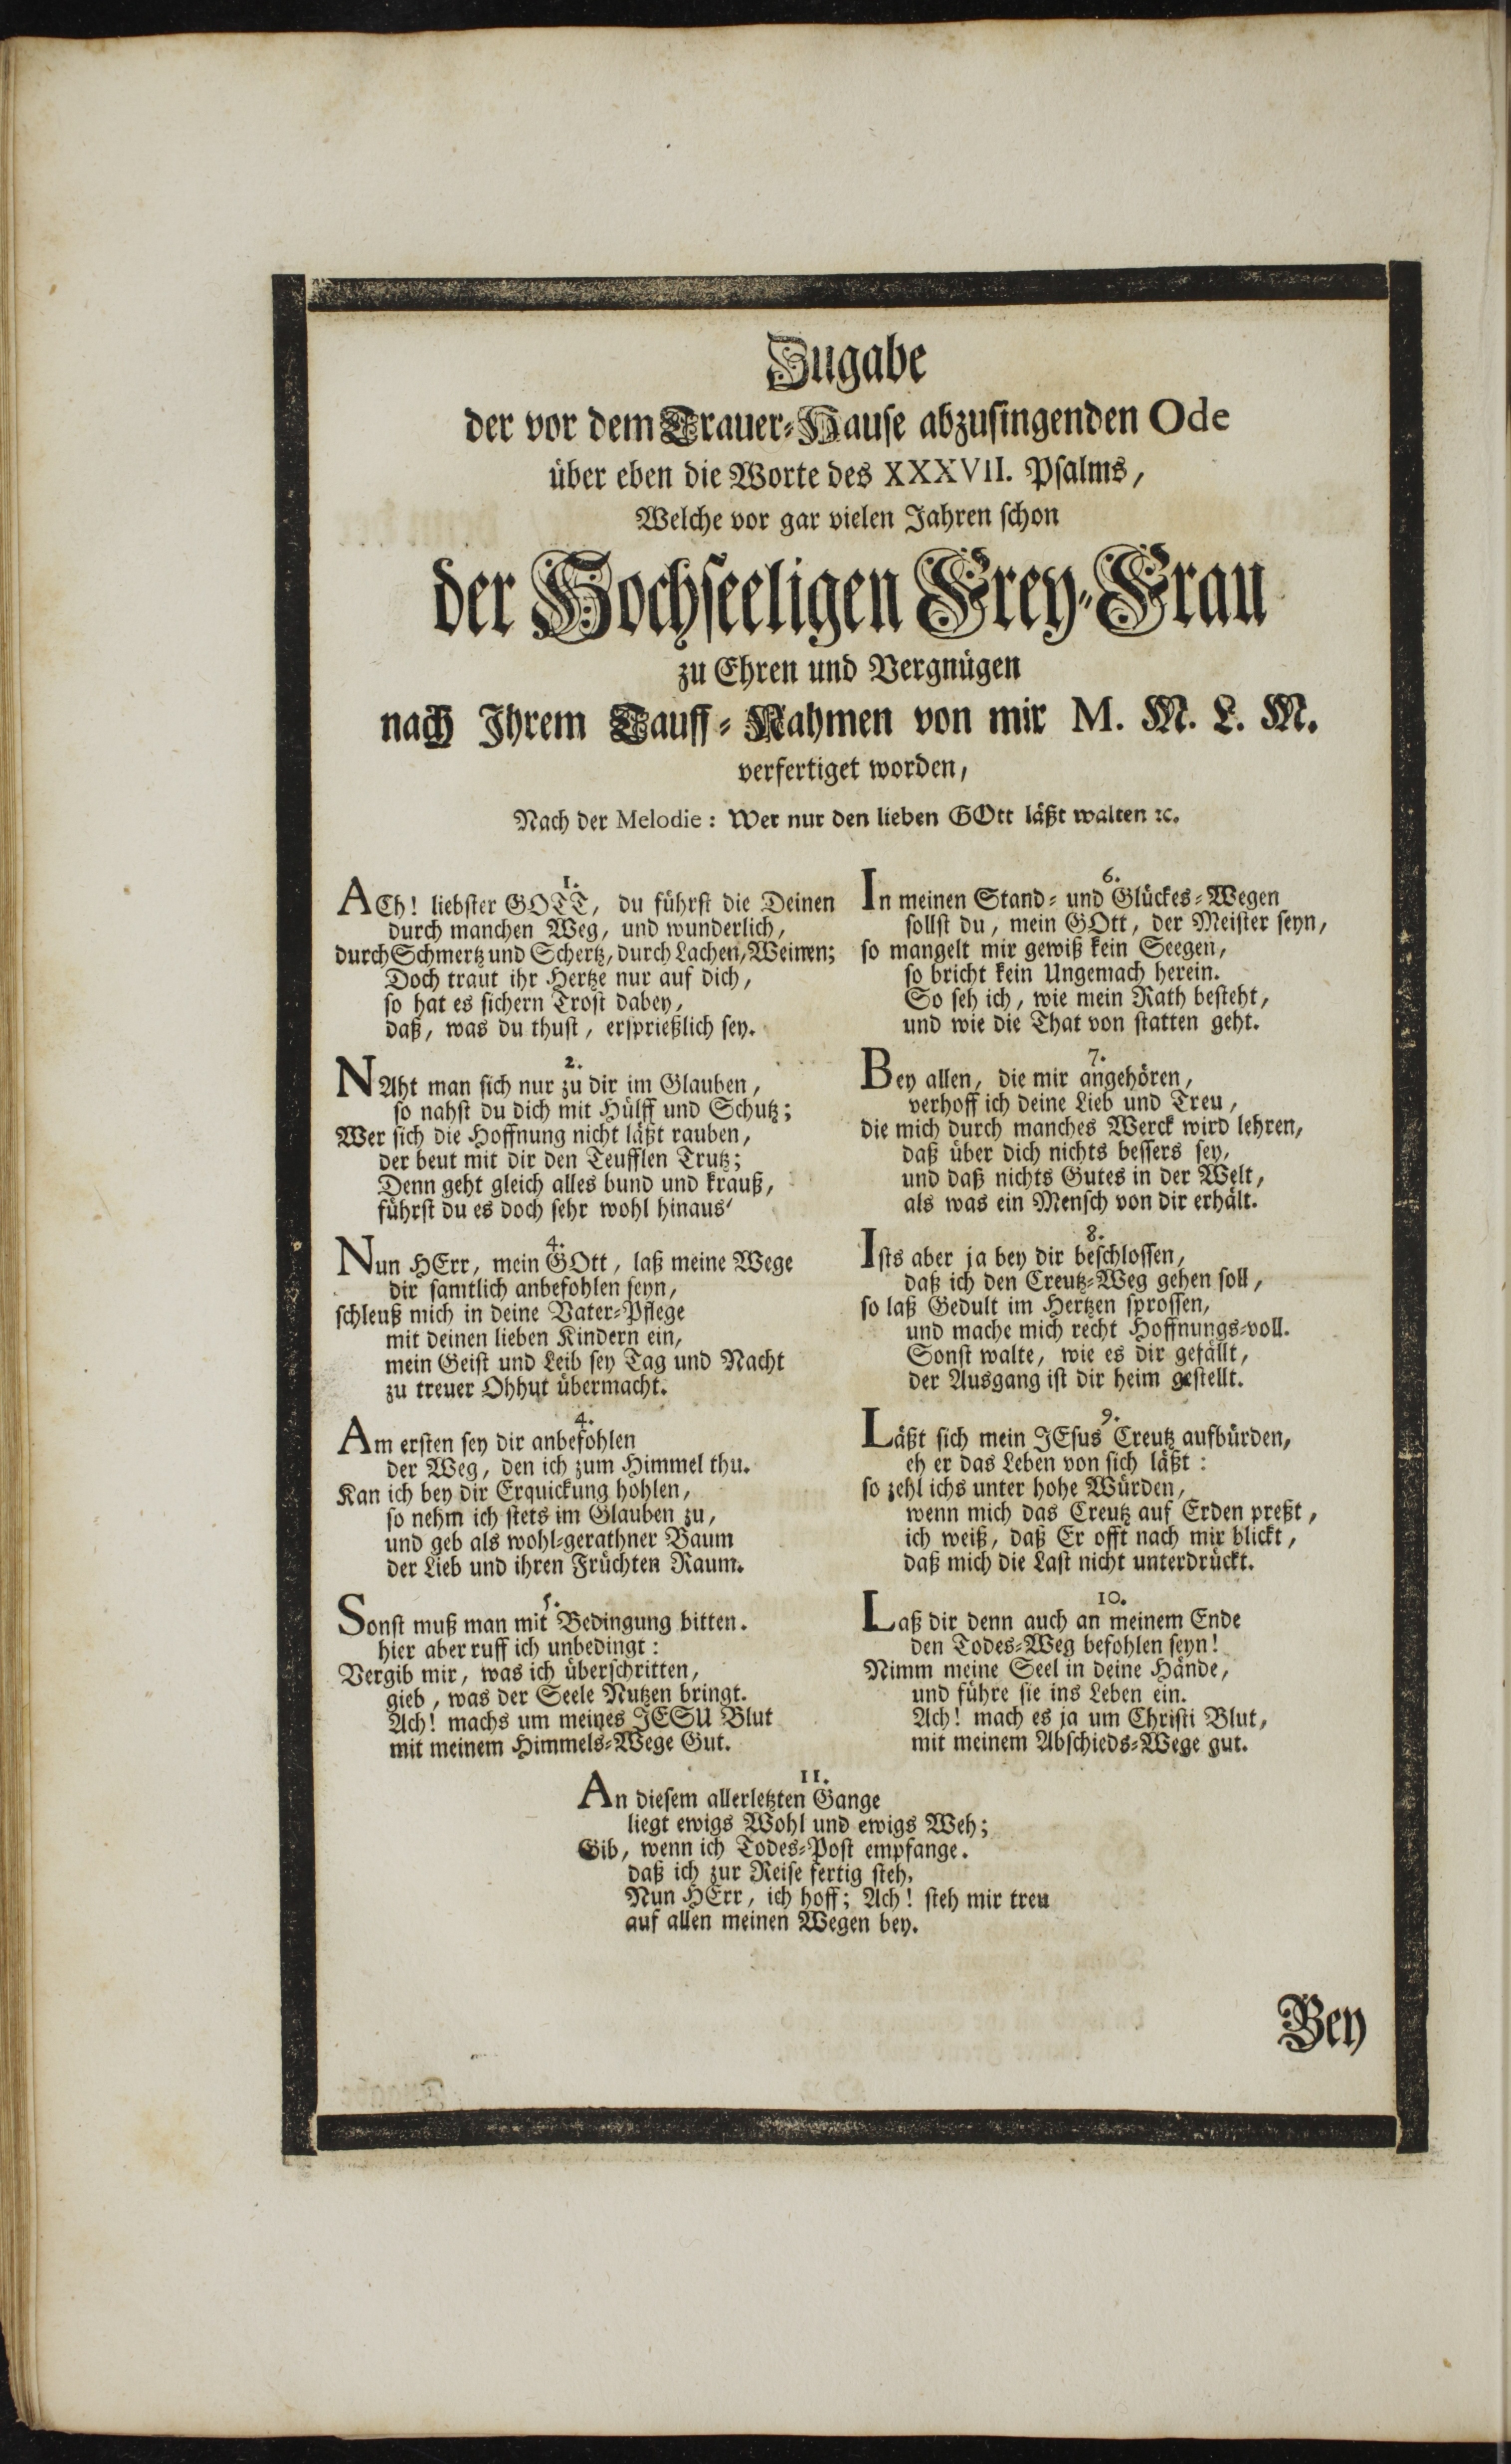 Zugabe
der vor dem Trauer-Hause abzusingenden Ode
über eben die Worte des XXXVII. Psalms,
Welche vor gar vielen Jahren schon
der Hochseeligen Frey-Frau
zu Ehren und Vergnügen
nach Ihrem Tauff-Nahmen von mir M. M. L. M.
verfertiget worden,
Nach der Melodie: Wer nur den lieben GOtt läßt walten ꝛc.
1.
ACh! liebster GOTT, du führst die Deinen
durch manchen Weg, und wunderlich,
durch Schmertz und Schertz, durch Lachen, Weinen;
Doch traut ihr Hertze nur auf dich,
so hat es sichern Trost dabey,
daß, was du thust, ersprießlich sey.
2.
NAht man sich nur zu dir im Glauben,
so nahst du dich mit Hülff und Schutz;
Wer sich die Hoffnung nicht läßt rauben,
der beut mit dir den Teufflen Trutz;
Denn geht gleich alles bund und krauß,
führst du es doch sehr wohl hinaus'
4.
Nun HErr, mein GOtt, laß meine Wege
dir samtlich anbefohlen seyn,
schleuß mich in deine Vater-Pflege
mit deinen lieben Kindern ein,
mein Geist und Leib sey Tag und Nacht
zu treuer Ohhut übermacht.
4.
Am ersten sey dir anbefohlen
der Weg, den ich zum Himmel thu.
Kan ich bey dir Erquickung hohlen,
so nehm ich stets im Glauben zu,
und geb als wohl-gerathner Baum
der Lieb und ihren Früchten Raum.
5.
Sonst muß man mit Bedingung bitten.
hier aber ruff ich unbedingt:
Vergib mir, was ich überschritten,
gieb, was der Seele Nutzen bringt.
Ach! machs um meines JESU Blut
mit meinem Himmels-Wege Gut.
6.
In meinen Stand- und Glückes-Wegen
sollst du, mein GOtt, der Meister seyn,
so mangelt mir gewiß kein Seegen,
so bricht kein Ungemach herein.
So seh ich, wie mein Rath besteht,
und wie die That von statten geht.
7.
Bey allen, die mir angehören,
verhoff ich deine Lieb und Treu,
die mich durch manches Werck wird lehren,
daß über dich nichts bessers sey,
und daß nichts Gutes in der Welt,
als was ein Mensch von dir erhält.
8.
Ists aber ja bey dir beschlossen,
daß ich den Creutz-Weg gehen soll,
so laß Gedult im Hertzen sprossen,
und mache mich recht Hoffnungs-voll.
Sonst walte, wie es dir gefällt,
der Ausgang ist dir heim gestellt.
9.
Läßt sich mein JEsus Creutz aufbürden,
eh er das Leben von sich läßt:
so zehl ichs unter hohe Würden,
wenn mich das Creutz auf Erden preßt,
ich weiß, daß Er offt nach mir blickt,
daß mich die Last nicht unterdrückt.
10.
Laß dir denn auch an meinem Ende
den Todes-Weg befohlen seyn!
Nimm meine Seel in deine Hände,
und führe sie ins Leben ein.
Ach! mach es ja um Christi Blut,
mit meinem Abschieds-Wege gut.
11.
An diesem allerletzten Gange
liegt ewigs Wohl und ewigs Weh;
Gib, wenn ich Todes-Post empfange.
daß ich zur Reise fertig steh,
Nun HErr, ich hoff; Ach! steh mir treu
auf allen meinen Wegen bey.
Bey